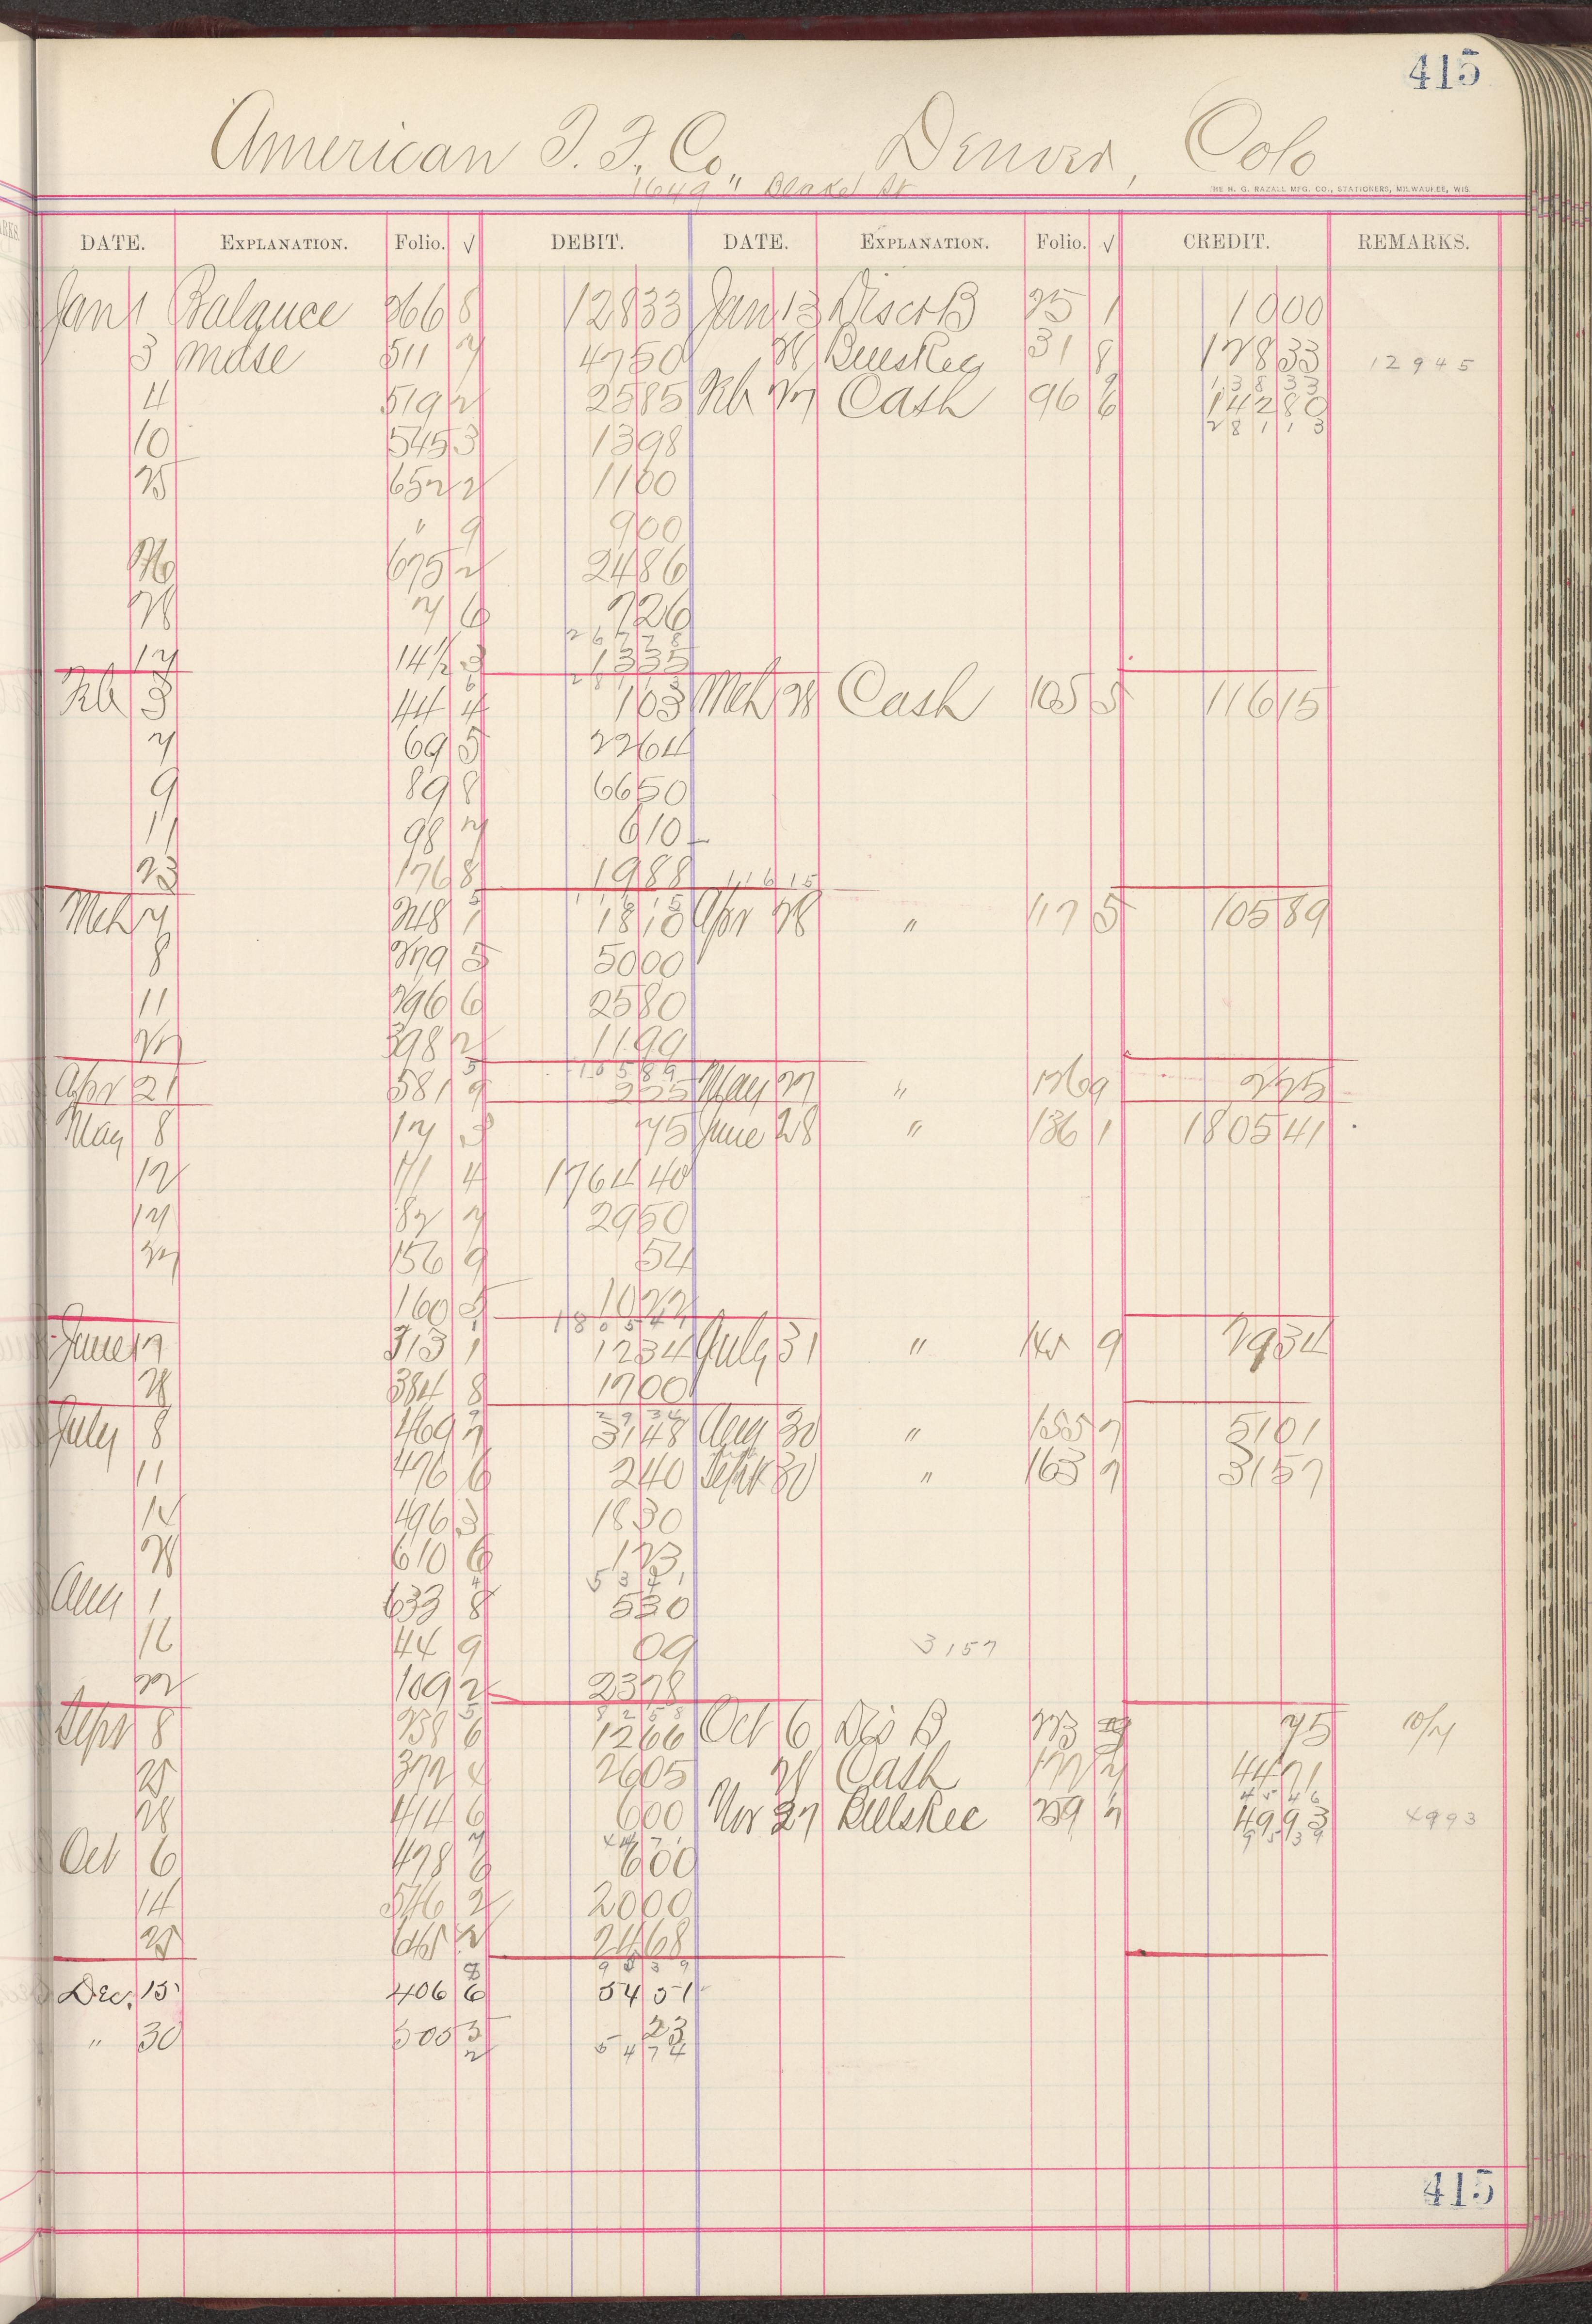 415
American T. F. Co., Denver, Colo
1649 " Blake St
THE H. G. RAZALL MFG. CO., STATIONERS, MILWAUKEE, WIS.
DATE. EXPLANATION. Folio. √ DEBIT. DATE. EXPLANATION. Folio. √ CREDIT. REMARKS.
Jan 1 Balance 266 8 128 33 Jan 13 Disct B 25 1 10 00
3 Mdse 511 7 47 50 28 Bills Rec 31 8 128 33 12945
138 33
4 519 2 25 85 Feb 27 Cash 96 6 142 80
281 13
10 545 3 13 98
25 652 2 11 00
" 9 9 00
26 675 2 24 86
28 7 6 7 26
267 78
17 14½ 3 13 35
Feb 3 44 4 1 03 Mch 28 Cash 105 5 116 15
7 69 5 22 64
9 89 8 66 50
11 98 7 6 10
23 176 8 19 88 116 15
Mch 7 248 1 18 10 Apr 28 " 117 5 105 89
8 279 5 50 00
11 296 6 25 80
27 398 2 11 99
105 89
Apr 21 581 9 2 25 May 27 " 126 9 2 25
May 8 17 3 75 June 28 " 136 1 1805 41
12 71 4 1764 40
17 82 7 29 50
27 156 9 54
160 3 10 22
1805 41
June 17 313 1 12 34 July 31 " 145 9 29 34
28 384 8 17 00
29 34
July 8 469 7 31 48 Aug 30 " 155 7 51 01
11 476 6 2 40 Sept 30 " 163 7 31 57
14 496 3 18 30
28 610 6 1 23
Aug 1 633 8 5 30
16 44 9 09 31 57
22 109 2 23 78
Sept 8 238 6 12 66 Oct 6 Dis B 223 75 10/7
25 372 26 05 28 Cash 177 2 44 71
45 46
28 414 6 6 00 Nov 27 Bills Rec 259 7 49 93 4993
95 39
Oct 6 478 6 6 00
14 546 2 20 00
25 2 24 68
95 39
Dec. 15 406 6 54 51
" 30 505 3 23
54 74
415